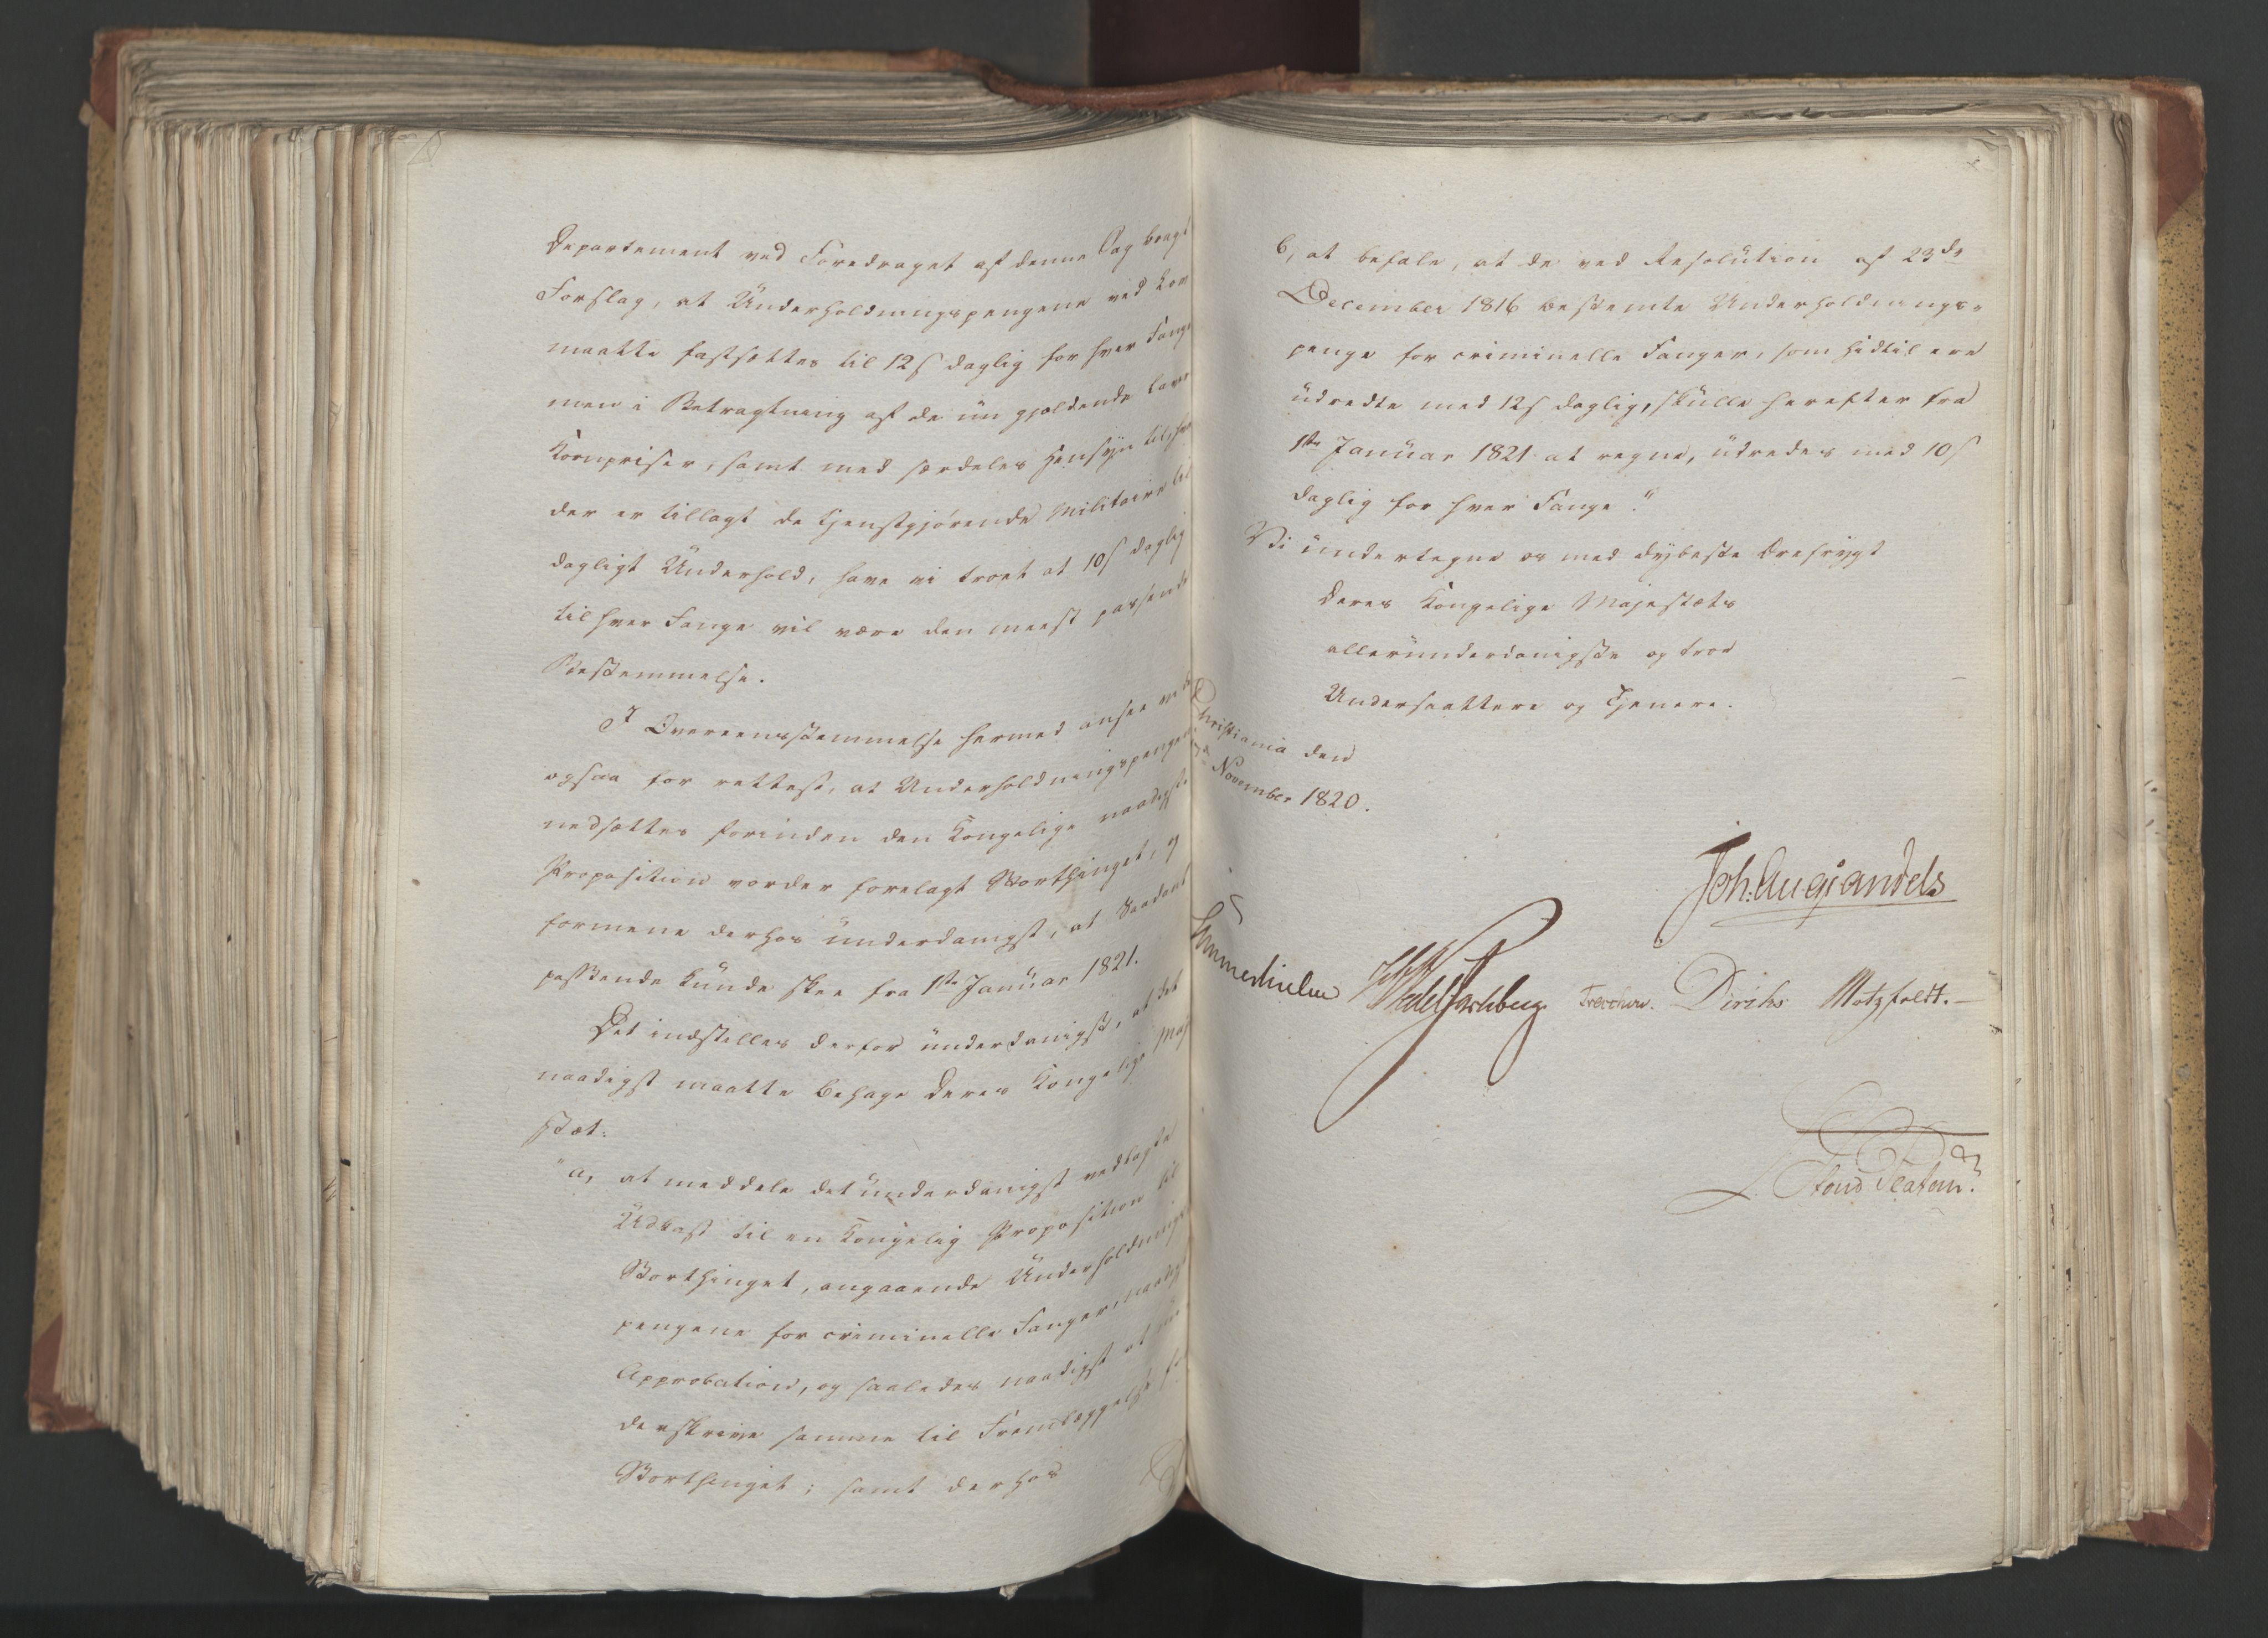 Departement ved Foredraget af denne Sag bragt
Forslag, at Underholdningspengene ved Lov
maatte fastsættes til 12 s daglig for hver Fange
men i Betragtning af de nu gjældende lave
Kornpriser, samt med særdeles Hensyn til, hva
der er tillagt de tjenstgjørende Militaire til
dagligt Underhold, have vi troet at 10 s daglig
til hver Fange vil være den meest passende
Bestemmelse.
I Overeensstemmelse hermed ansee vi de
ogsaa for rettest, at Underholdningspengene
nedsættes forinden den Kongelige naadigste
Proposition vorder forelagt Storthinget, og
formene derhos underdanigst, at Saadant
passende kunde skee fra 1ste Januar 1821.
Det indstilles derfor underdanigst, at det
naadigst maatte behage Deres Kongelige Maj
stæt:
"a, at meddele det underdanigst vedlagte
Udkast til en Kongelig Proposition til
Storthinget, angaaende Underholdnings
pengene for criminelle Fanger, naadigst
Approbation, og saaledes naadigst at un
derskrive samme til Fremlæggelse for
Storthinget; samt derhos
b, at befale, at de ved Resolution af 23de
December 1816 bestemte Underholdnings-
penge for criminelle Fanger, som hidtil ere
udredte med 12 s daglig, skulle herefter fra
1ste Januar 1821 at regne, udredes med 10 s
daglig for hver Fange."
Vi undertegne os med dybeste Ærefrygt
Deres Kongelige Majestæts
allerunderdanigste og troe
Undersaattere og Tjenere.
Christiania den
November 1820.
Joh. Aug Sandels
Sommerhielm Wedel Jarlsberg Treschow. Diriks Motzfeldt.